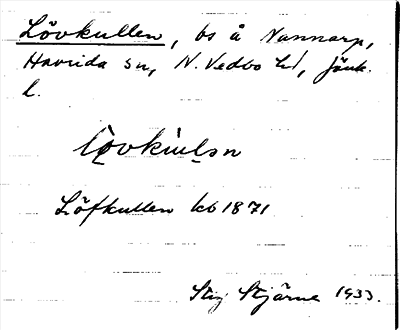 Lövkullen, bs å Nannarp,
Haurida sn, N. Vedbo hd, Jönk.
l.
Löfkullen kb 1871
Stig Stjärne 1933.